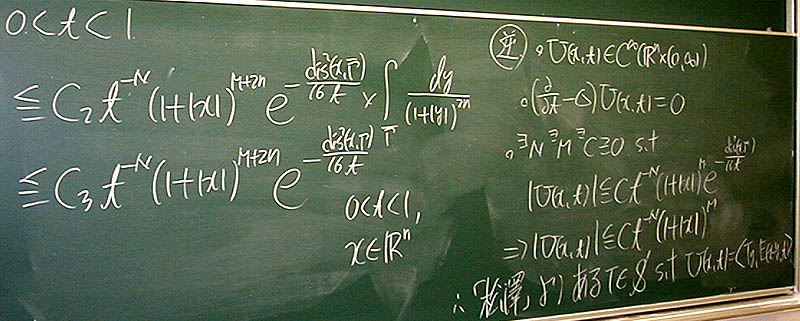 0<t<1
≦ C₂ t^{-N} (1+|x|)^{M+2n} e^{-dis²(x,Γ)/16t} × ∫_Γ dy/(1+|y|)^{2n}
≦ C₃ t^{-N} (1+|x|)^{M+2n} e^{-dis²(x,Γ)/16t}
0<t<1,
x∈ℝⁿ
逆 ∘ U(x,t)∈C^∞(ℝⁿ×(0,∞))
∘ (∂/∂t - Δ)U(x,t)=0
∘ ∃N ∃M ∃C≧0 s.t
|U(x,t)|≦Ct^{-N}(1+|x|)^M e^{-dis²(x,Γ)/16t}
⇒|U(x,t)|≦Ct^{-N}(1+|x|)^M
∴「松澤」より ある T∈𝒮' s.t U(x,t)=⟨T_y, E(x-y,t)⟩